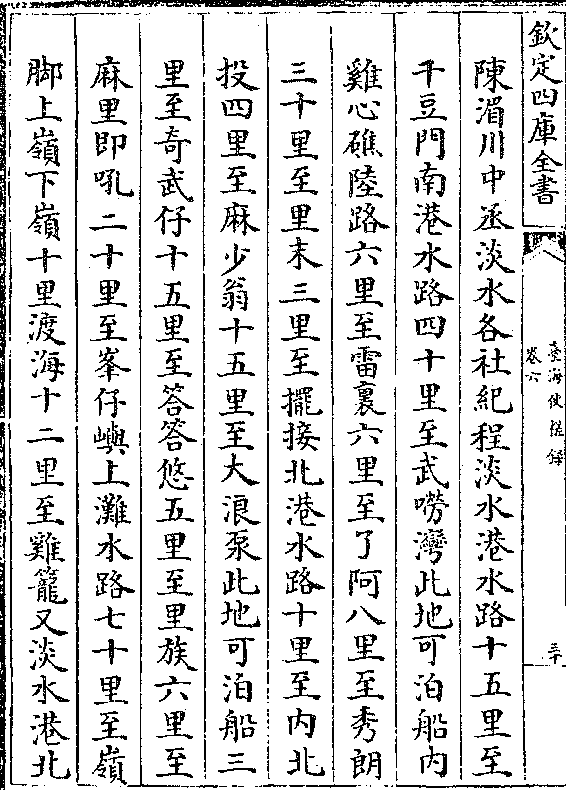 欽定四庫全書
臺海使槎錄
卷六
三十
陳湄川中丞淡水各社紀程淡水港水路十五里至
干豆門南港水路四十里至武嘮灣此地可泊船内
雞心礁陸路六里至雷裏六里至了阿八里至秀朗
三十里至里末三里至擺接北港水路十里至内北
投四里至麻少翁十五里至大浪泵此地可泊船三
里至奇武仔十五里至答答悠五里至里族六里至
麻里即吼二十里至峯仔嶼上灘水路七十里至嶺
脚上嶺下嶺十里渡海十二里至雞籠又淡水港北